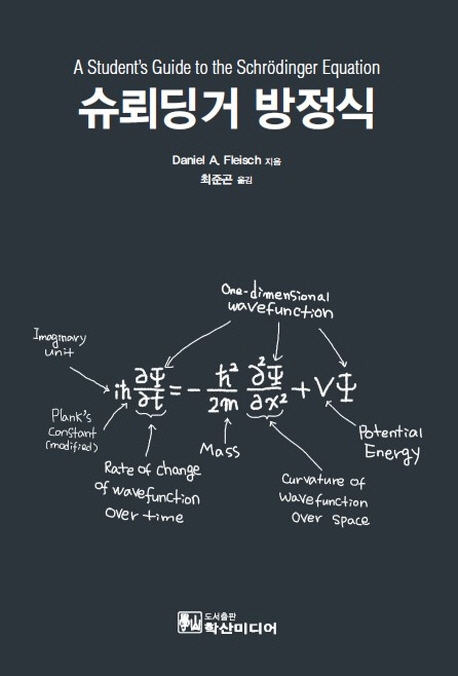 A Student's Guide to the Schrödinger Equation
슈뢰딩거 방정식
Daniel A. Fleisch 지음
최준곤 옮김
One-dimensional
wavefunction
Imaginary
unit
iħ ∂Ψ/∂t = - ħ²/2m ∂²Ψ/∂x² + VΨ
Plank's
Constant
(modified)
Mass
Potential
Energy
Rate of change
of wavefunction
over time
Curvature of
wavefunction
Over space
도서출판
학산미디어